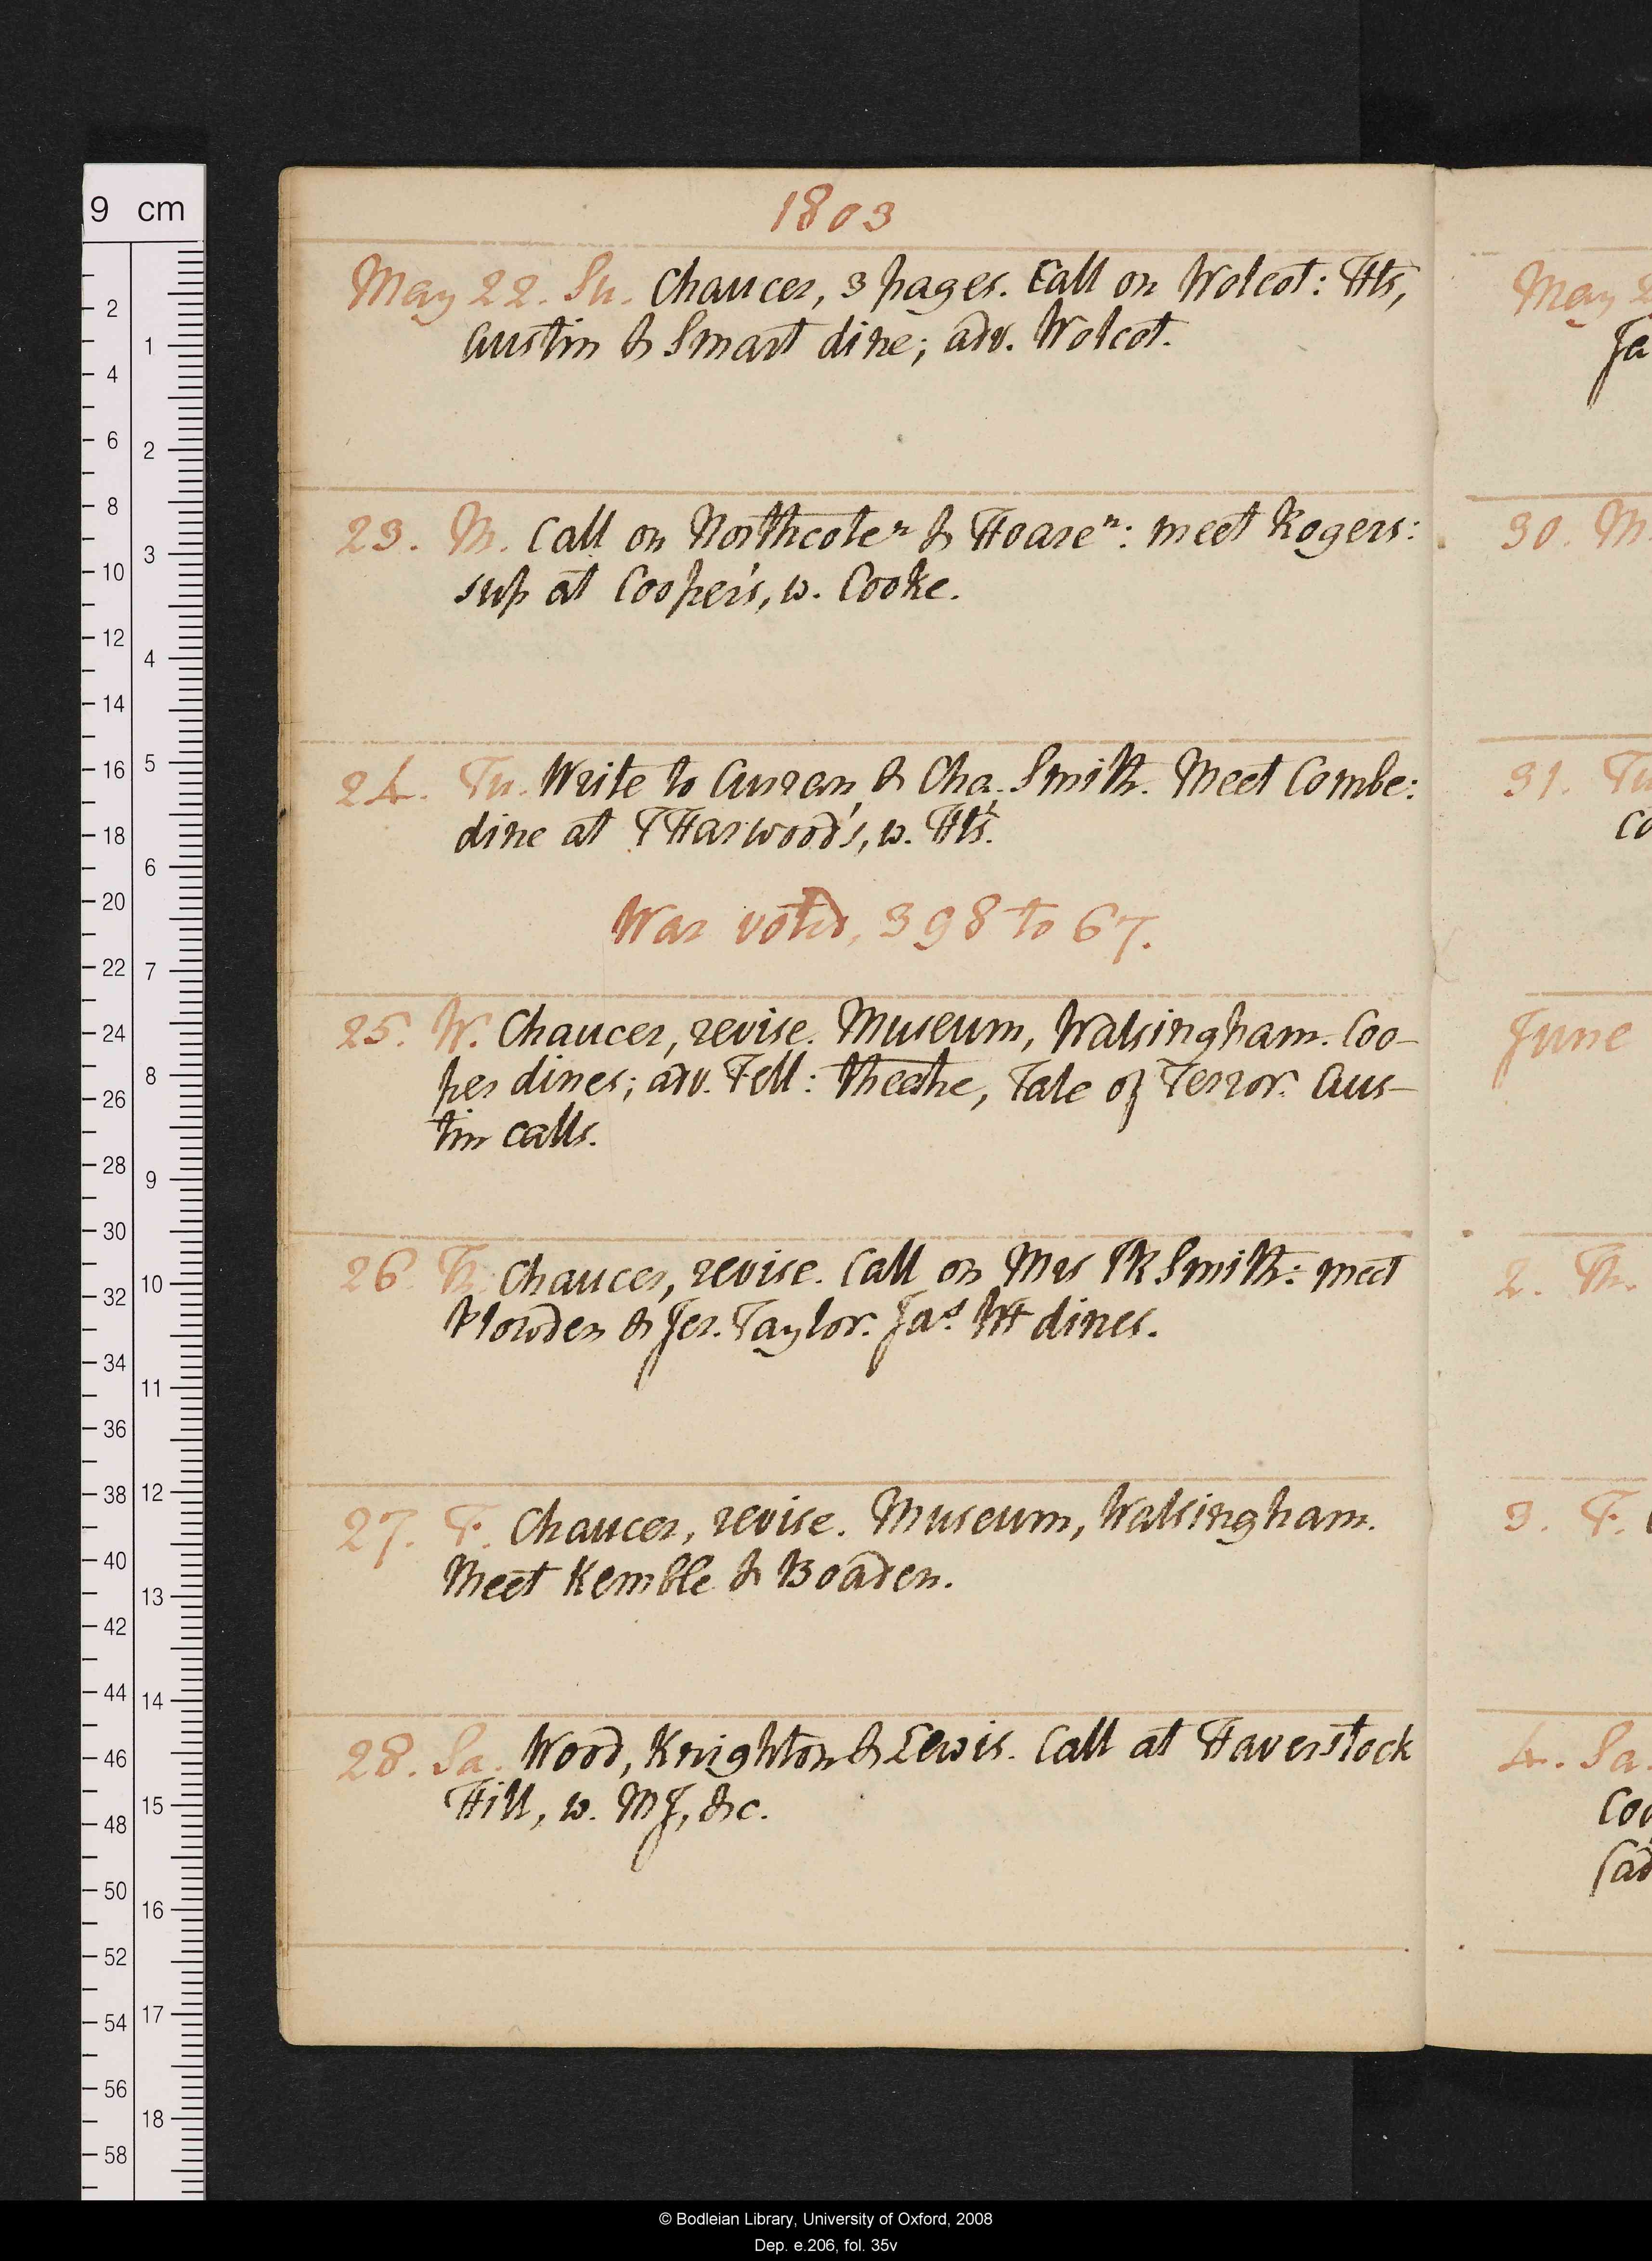 1803
May 22. Su. Chaucer, 3 pages. Call on Wolcot: Hts,
Austin & Smart dine; adv. Wolcot.
23. M. Call on Northcote n & Hoare n: meet Rogers:
sup at Cooper's, w. Cooke.
24. Tu. Write to Curran, & Cha. Smith. Meet Combe:
dine at T Harwood's, w. Hts.
War voted, 398 to 67.
25. W. Chaucer, revise. Museum, Walsingham. Coo-
per dines; adv. Fell: theatre, Tale of Terror. Aus-
tin calls.
26. Th. Chaucer, revise. Call on Mrs PR Smith: meet
Plowden & Jer. Taylor. Jas. Ht dines.
27. F. Chaucer, revise. Museum, Walsingham.
Meet Kemble & Boaden.
28. Sa. Wood, Knighton & Lewis. Call at Haverstock
Hill, w. MJ, &c.
May 2
Ja
30. M.
31. Tu
co
June
2. Th.
3. F.
4. Sa.
Coo
Cad
9 cm
2
4
6
8
10
12
14
16
18
20
22
24
26
28
30
32
34
36
38
40
42
44
46
48
50
52
54
56
58
1
2
3
4
5
6
7
8
9
10
11
12
13
14
15
16
17
18
© Bodleian Library, University of Oxford, 2008
Dep. e.206, fol. 35v